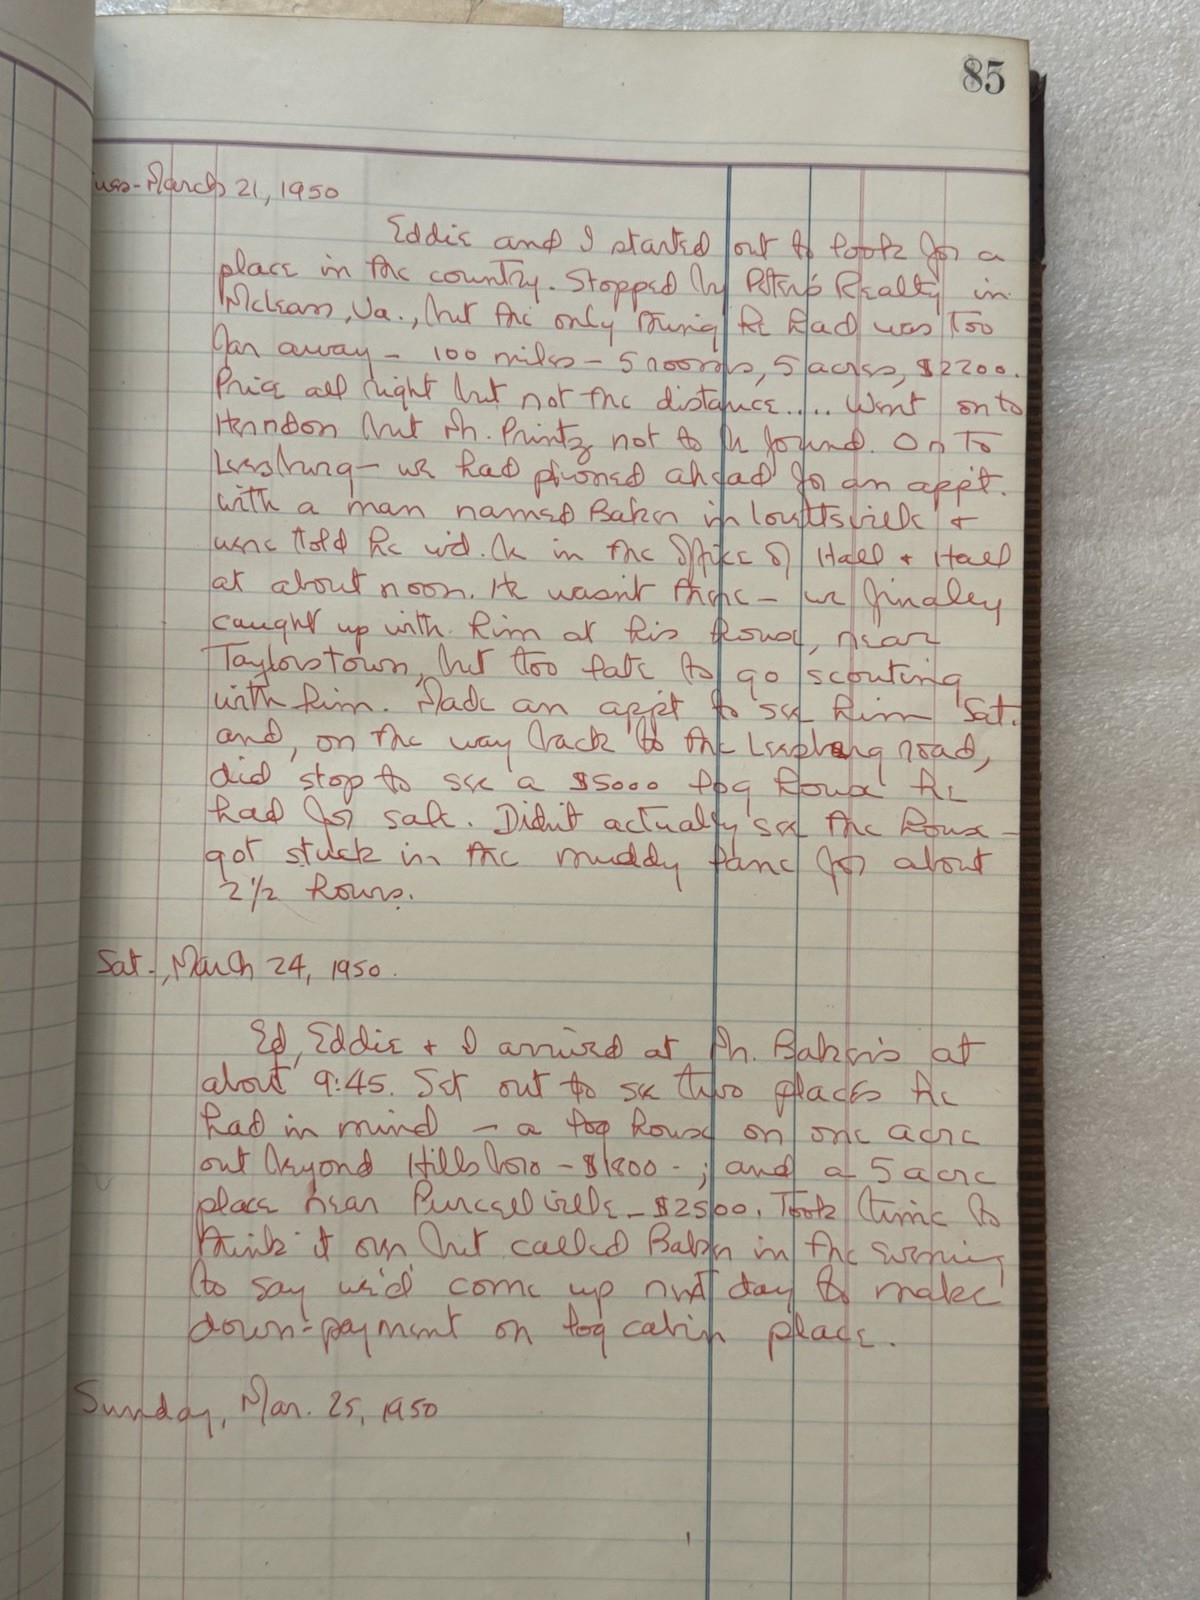 85
Tues-March 21, 1950
Eddie and I started out to look for a
place in the country. Stopped by Peter's Realty in
McLean, Va., but the only thing he had was too
far away - 100 miles - 5 rooms, 5 acres, $2200.
Price all right but not the distance..... Went on to
Herndon but Mr. Printz not to be found. On to
Leesburg - we had phoned ahead for an appt.
with a man named Baker in Lovettsville &
were told he w'd. be in the office of Hall & Hall
at about noon. He wasn't there - we finally
caught up with him at his house, near
Taylorstown, but too late to go scouting
with him. Made an appt to see him Sat.
and, on the way back to the Leesburg road,
did stop to see a $5000 log house he
had for sale. Didn't actually see the house -
got stuck in the muddy lane for about
2 1/2 hours.
Sat., March 24, 1950.
Ed, Eddie & I arrived at Mr. Baker's at
about 9:45. Set out to see two places he
had in mind - a log house on one acre
out beyond Hillsboro - $1800 - ; and a 5 acre
place near Purcellville - $2500. Took time to
think it over but called Baker in the evening
to say we'd come up next day to make
down-payment on log cabin place.
Sunday, Mar. 25, 1950